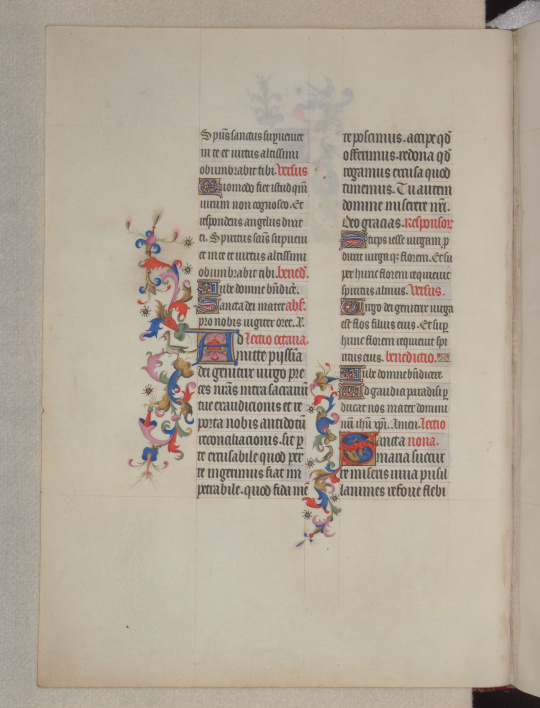 Spūs sanctus supueniet
in te et uirtus altissimi
obumbrabit tibi. Versus
Quomodo fiet istud qm̄
uirum non cognosco. Et
respondens angelus dixit
ei. Spiritus sāus supueni
et in te et uirtus altissimi
obumbrabit tibi. bened̄.
Iube domne bn̄dic̄e.
Sancta dei mater abs̄.
pro nobis iugiter oret. R.
Ad Lectio octaua.
mitte pijssīa
dei genitrix uirgo pre
ces nrās intra sacrariū
tue exaudicionis et re
porta nobis antidotū
reconciliacionis. sit p
te excusabile quod per
te ingerimus fiat im
petrabile. quod fida mē
te poscimus. accipe qd̄
offerimus. redona qd̄
rogamus excusa quod
timemus. Tu autem
domine miserere nr̄i.
Deo gracias. Responsor̄
Stirps iesse uirgam p
duxit uirgaq; florem. Et su
per hunc florem requieuit
spiritus almus. Versus.
Virgo dei genitrix uirga
est flos filius eius. Et sup
hunc florem requieuit spi
ritus eius. benedictio.
Iube domne bn̄dicere.
Ad gaudia paradisi p
ducat nos mater domini
nr̄i ihū xp̄i. Amen. Lectio
Sancta nona.
maria succur
re miseris iuua pusil
lanimes refoue flebi